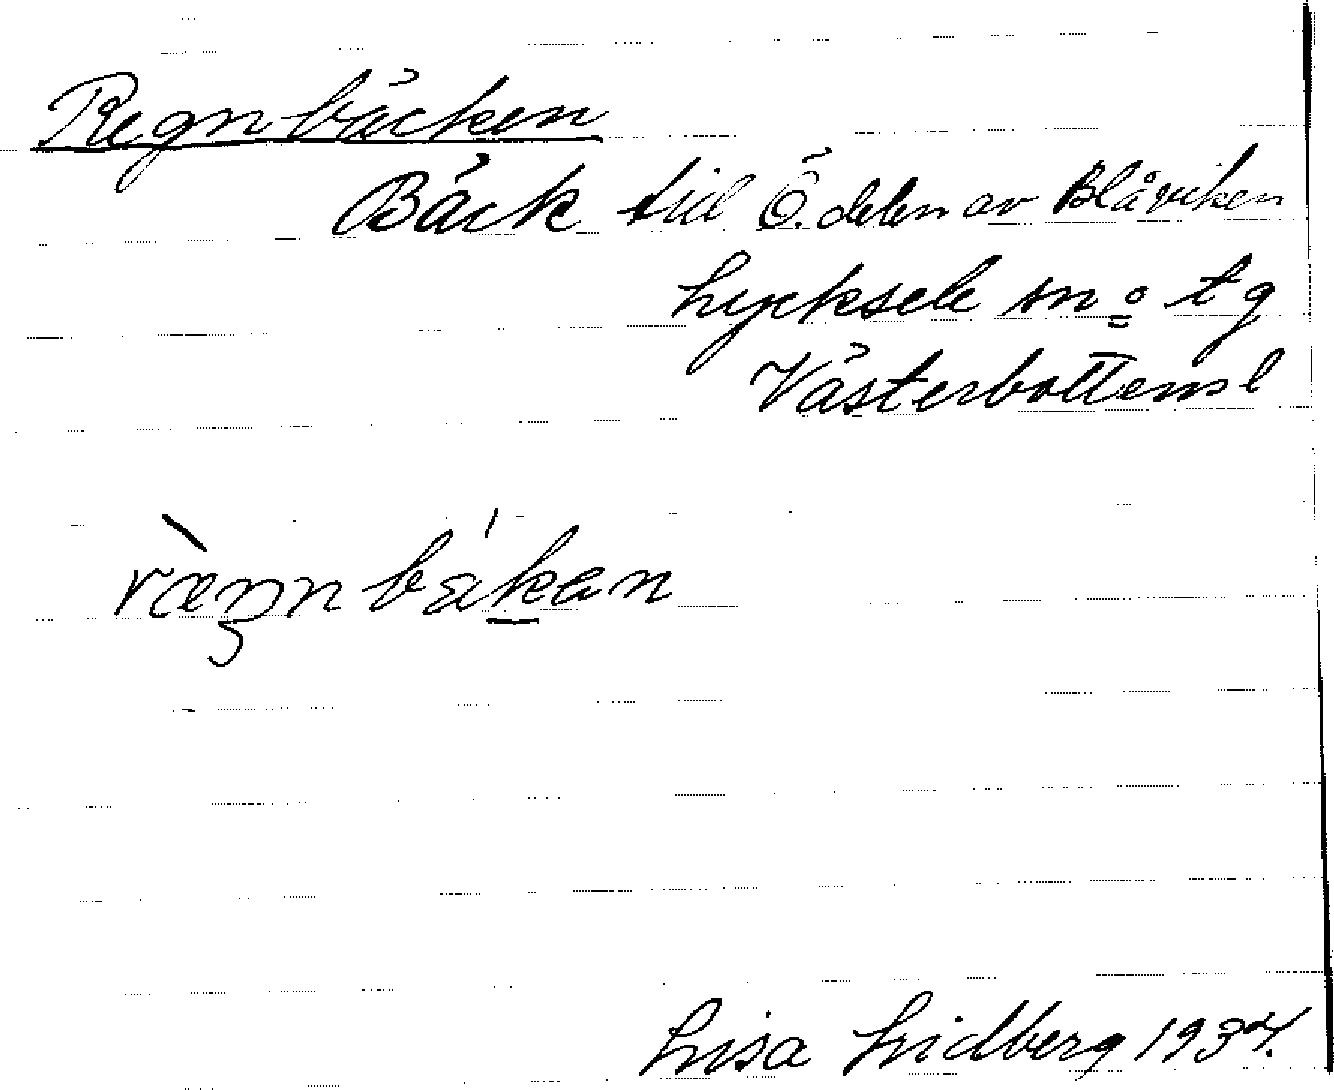 Regnbäcken
Bäck till Ö. delen av Blåviken
Lycksele sn o tg
Västerbottens l
ræŋnbäkan
Lisa Lidberg 1937.